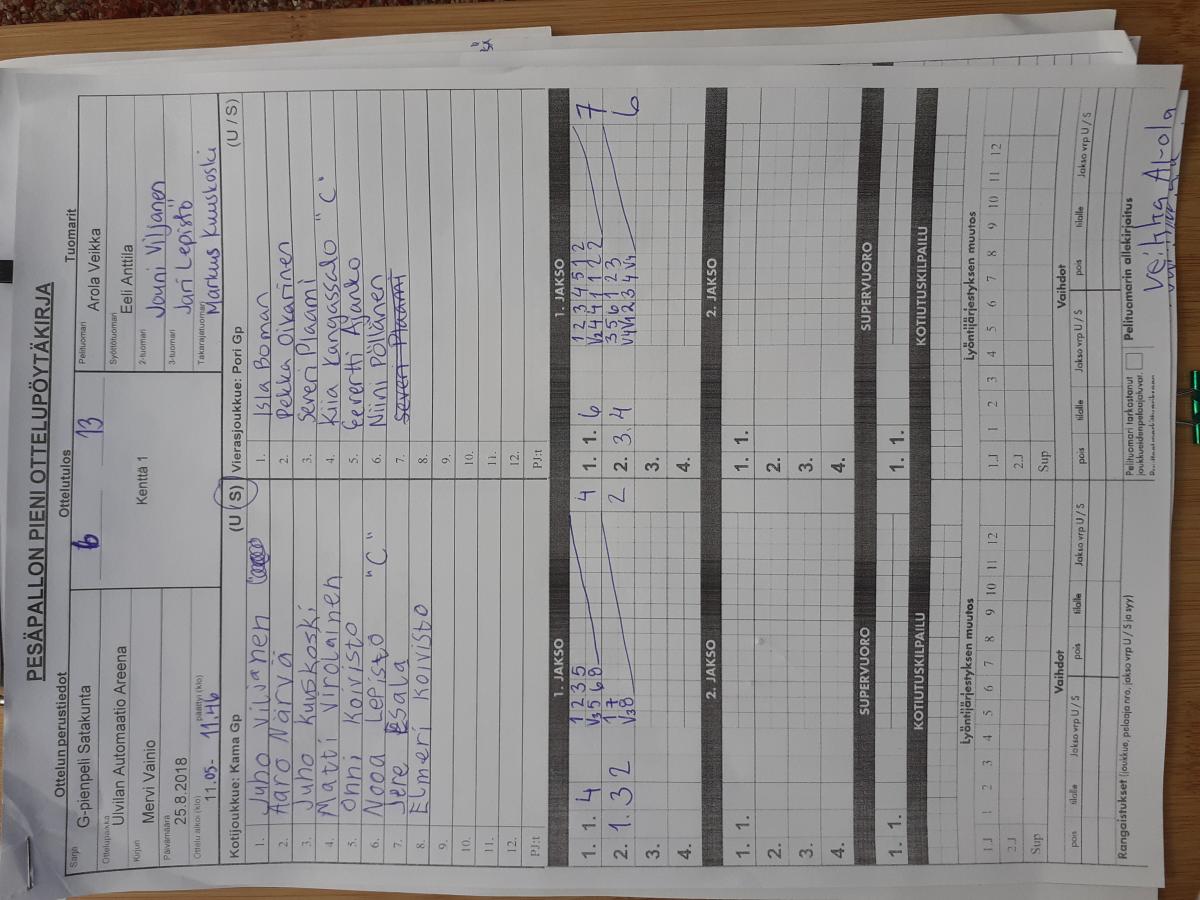 PESÄPALLON PIENI OTTELUPÖYTÄKIRJA
Ottelun perustiedot
Ottelutulos
Tuomarit
Sarja
G-pienpeli Satakunta
Ottelupaikka
Ulvilan Automaatio Areena
Kirjuri
Mervi Vainio
Päivämäärä
25.8.2018
Ottelu alkoi (klo)
päättyi (klo)
11.05- 11.46
6 13
Kenttä 1
Pelituomari
Arola Veikka
Syöttötuomari
Eeli Anttila
2-tuomari
Jouni Viljanen
3-tuomari
Jari Lepistö
Takarajatuomari
Markus Kuuskoski
Kotijoukkue: Kama Gp (U / S)
1. Juho Viljanen
2. Aaro Närvä
3. Juho Kuuskoski
4. Matti Virolainen
5. Onni Koivisto
6. Nooa Lepistö "C"
7. Jere Esala
8. Elmeri Koivisto
9.
10.
11.
12.
PJ:t
Vierasjoukkue: Pori Gp (U / S)
1. Isla Boman
2. Pekka Oikarinen
3. Severi Plaami
4. Kiia Kangassalo "C"
5. Eevertti Ajanko
6. Niini Pöllänen
7. Severi Plaami
8.
9.
10.
11.
12.
PJ:t
1. JAKSO
1. 1. 4
1 2 3 5
V3 5 6 8
4
2. 1. 3 2
1 7
V3 8
2
3.
4.
1. JAKSO
1. 1. 6
1 2 3 4 5 1 2
V2 4 4 1 1 2 2
7
2. 3. 4
3 5 6 1 2 3
V4 V4 2 3 4 V4
6
3.
4.
2. JAKSO
1. 1.
2.
3.
4.
2. JAKSO
1. 1.
2.
3.
4.
SUPERVUORO
1. 1.
SUPERVUORO
1. 1.
KOTIUTUSKILPAILU
KOTIUTUSKILPAILU
Lyöntijärjestyksen muutos
1.J 1 2 3 4 5 6 7 8 9 10 11 12
2.J
Sup
Lyöntijärjestyksen muutos
1.J 1 2 3 4 5 6 7 8 9 10 11 12
2.J
Sup
Vaihdot
pois tilalle Jakso vrp U / S pois tilalle Jakso vrp U / S
Vaihdot
pois tilalle Jakso vrp U / S pois tilalle Jakso vrp U / S
Rangaistukset (joukkue, pelaaja nro, jakso vrp U / S ja syy)
Pelituomari tarkastanut
joukkueidenpelaajaluvat.
Pelituomarin allekirjoitus